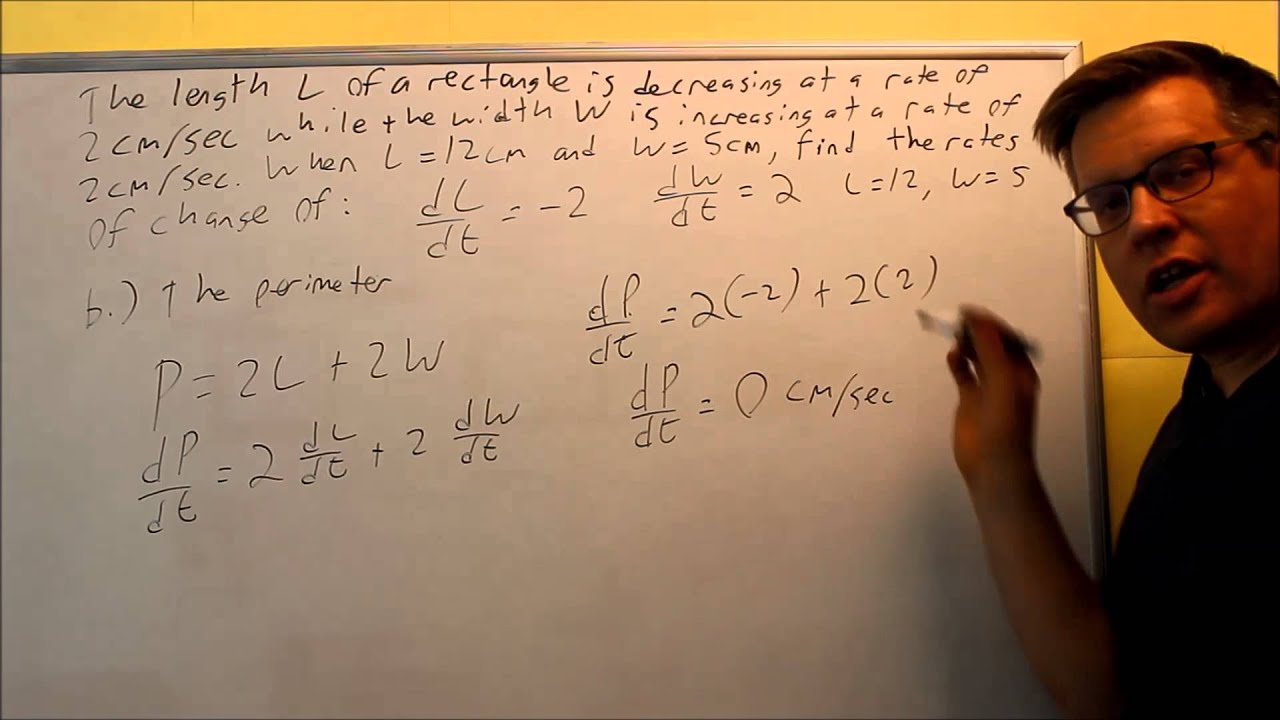 The length L of a rectangle is decreasing at a rate of
2cm/sec while the width W is increasing at a rate of
2cm/sec. When L=12cm and W=5cm, find the rates
of change of: dL/dt = -2 dW/dt = 2 L=12, W=5
b.) The perimeter
P = 2L + 2W
dP/dt = 2 dL/dt + 2 dW/dt
dP/dt = 2(-2) + 2(2)
dP/dt = 0 cm/sec